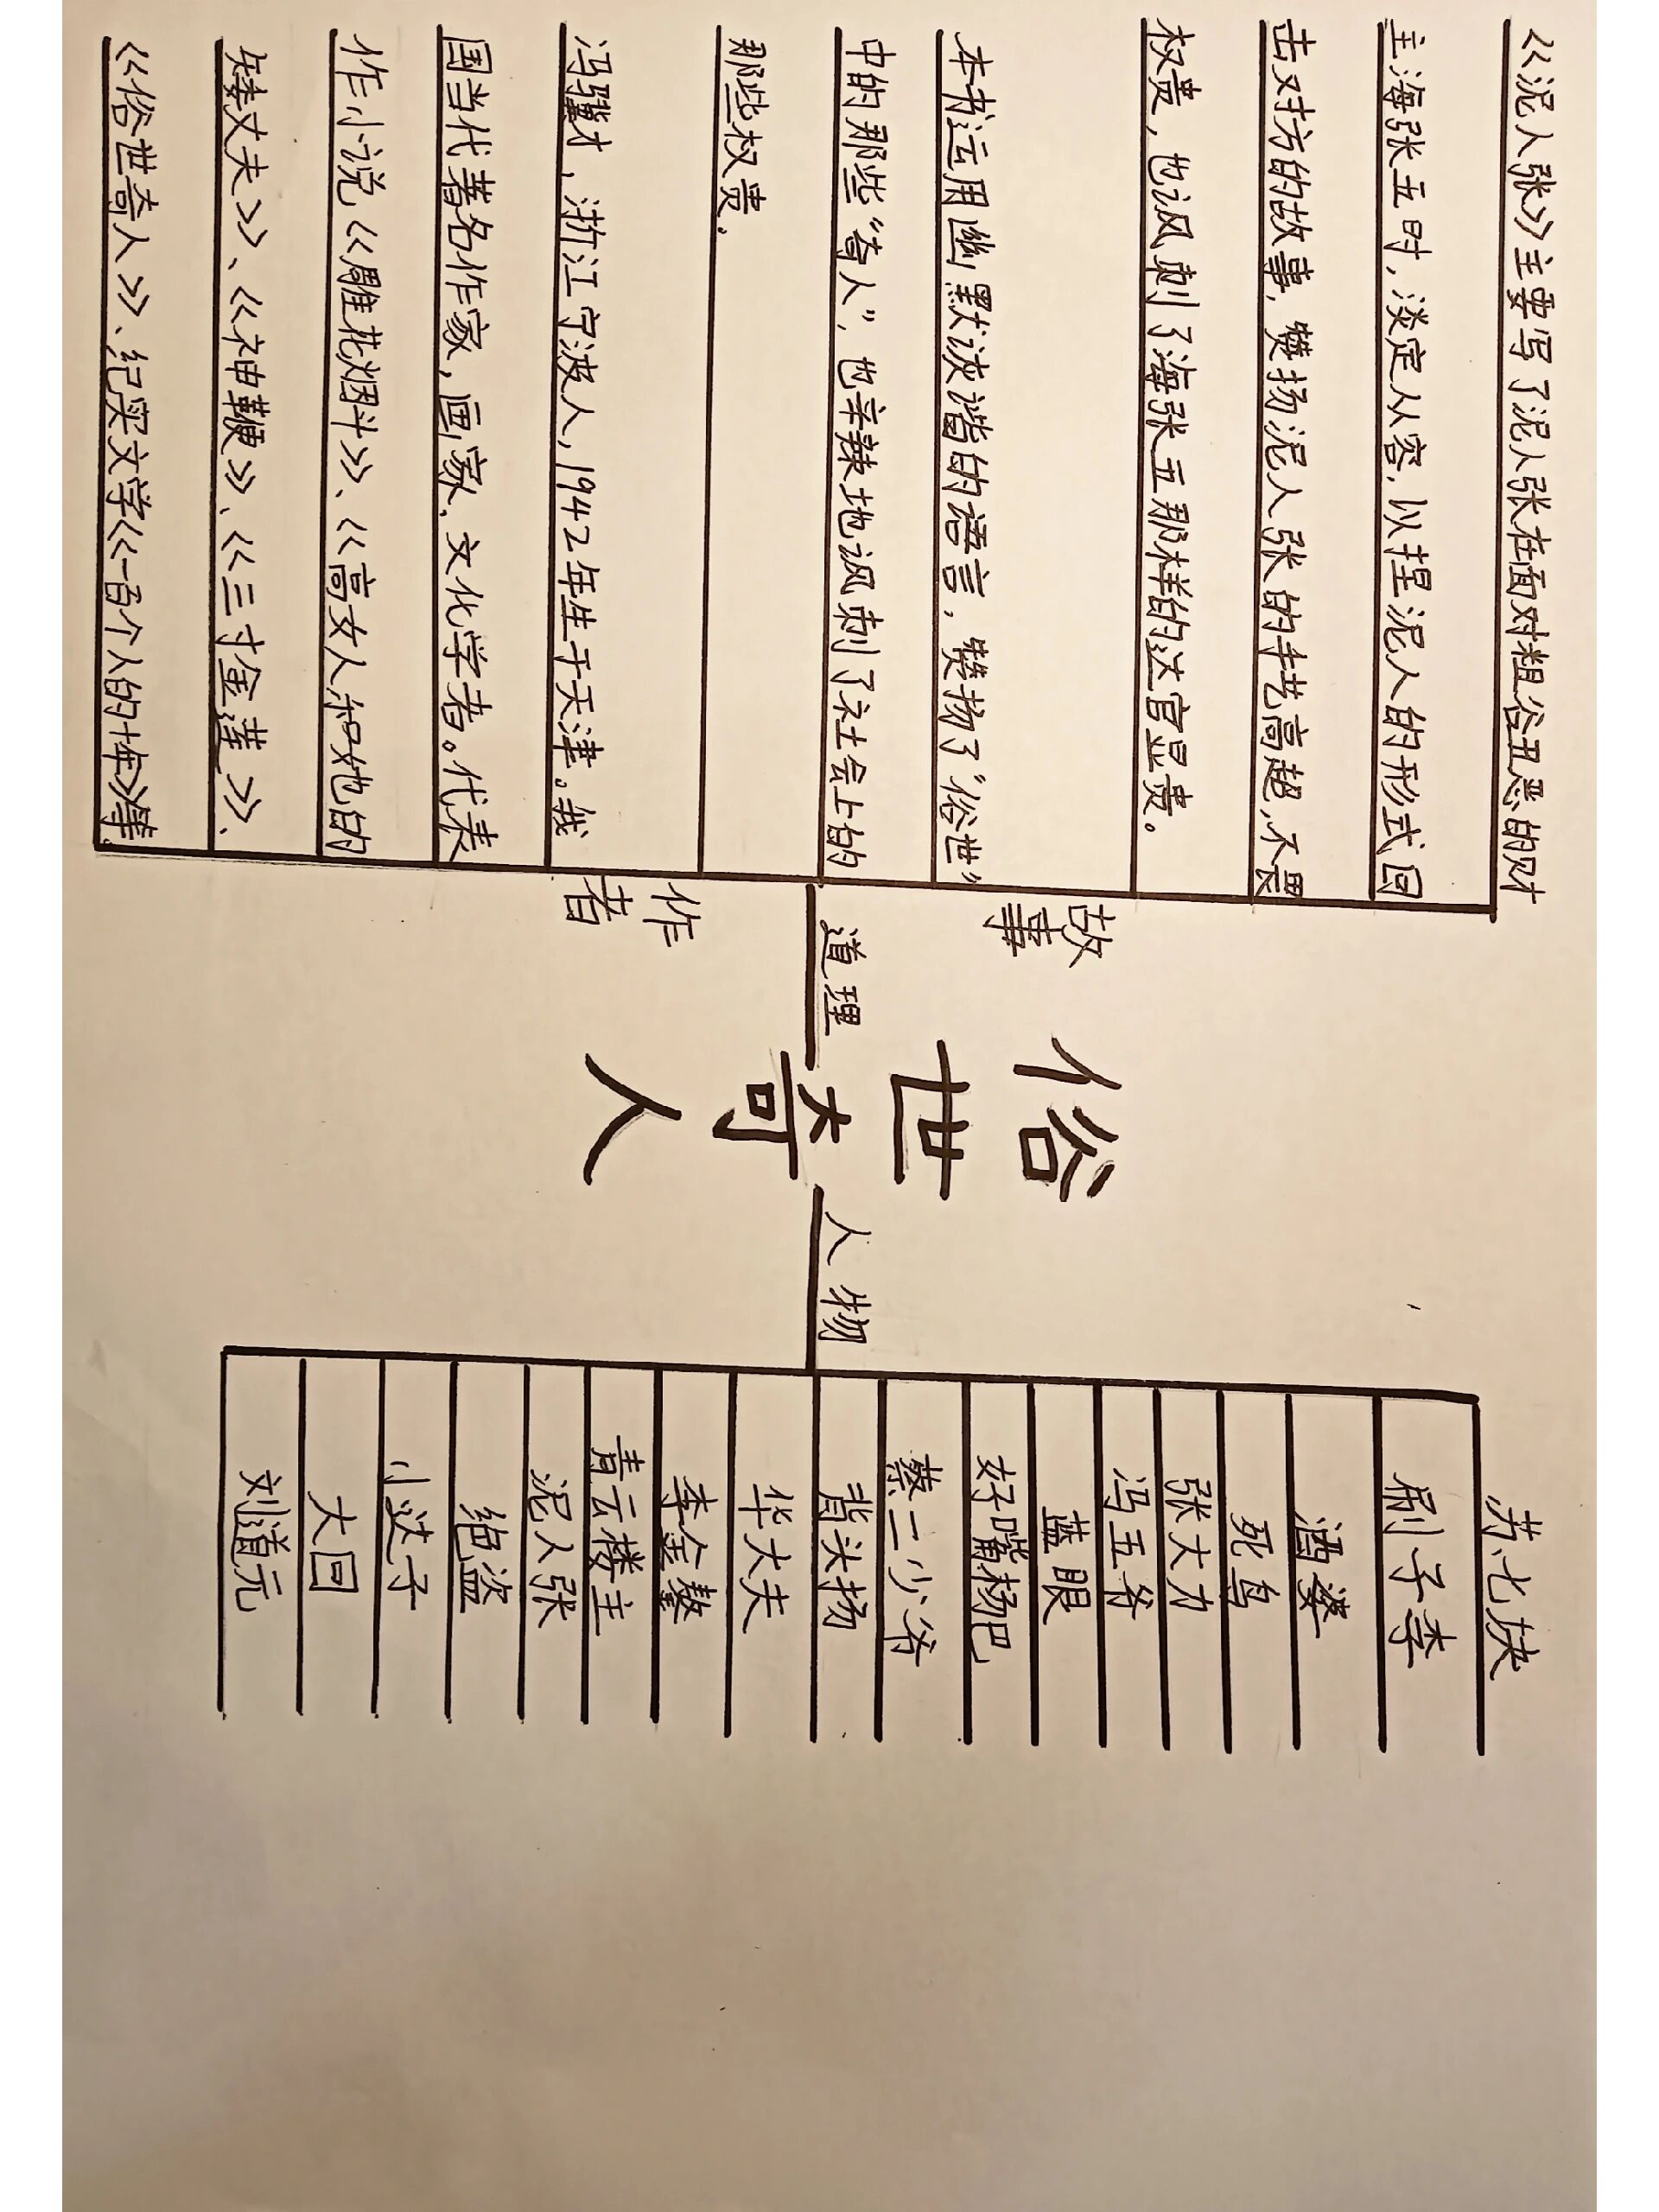 《泥人张》主要写了泥人张在面对粗俗丑恶的财
主海张五时,淡定从容,以捏泥人的形式回
击对方的故事,赞扬泥人张的手艺高超,不畏
权贵,也讽刺了海张五那样的达官显贵。
本书运用幽默诙谐的语言,赞扬了“俗世”
中的那些“奇人”,也辛辣地讽刺了社会上的
那些权贵.
冯骥才,浙江宁波人,1942年生于天津。我
国当代著名作家,画家,文化学者。代表
作小说《雕花烟斗》、《高女人和她的
矮丈夫》、《神鞭》、《三寸金莲》、
《俗世奇人》、纪实文学《一百个人的十年》等.
故事
道理
作者
俗世奇人
人物
苏七块
刷子李
酒婆
死鸟
张大力
冯五爷
蓝眼
好嘴杨巴
蔡二少爷
背头扬
华大夫
李金鳌
青云楼主
泥人张
绝盗
小达子
大回
刘道元